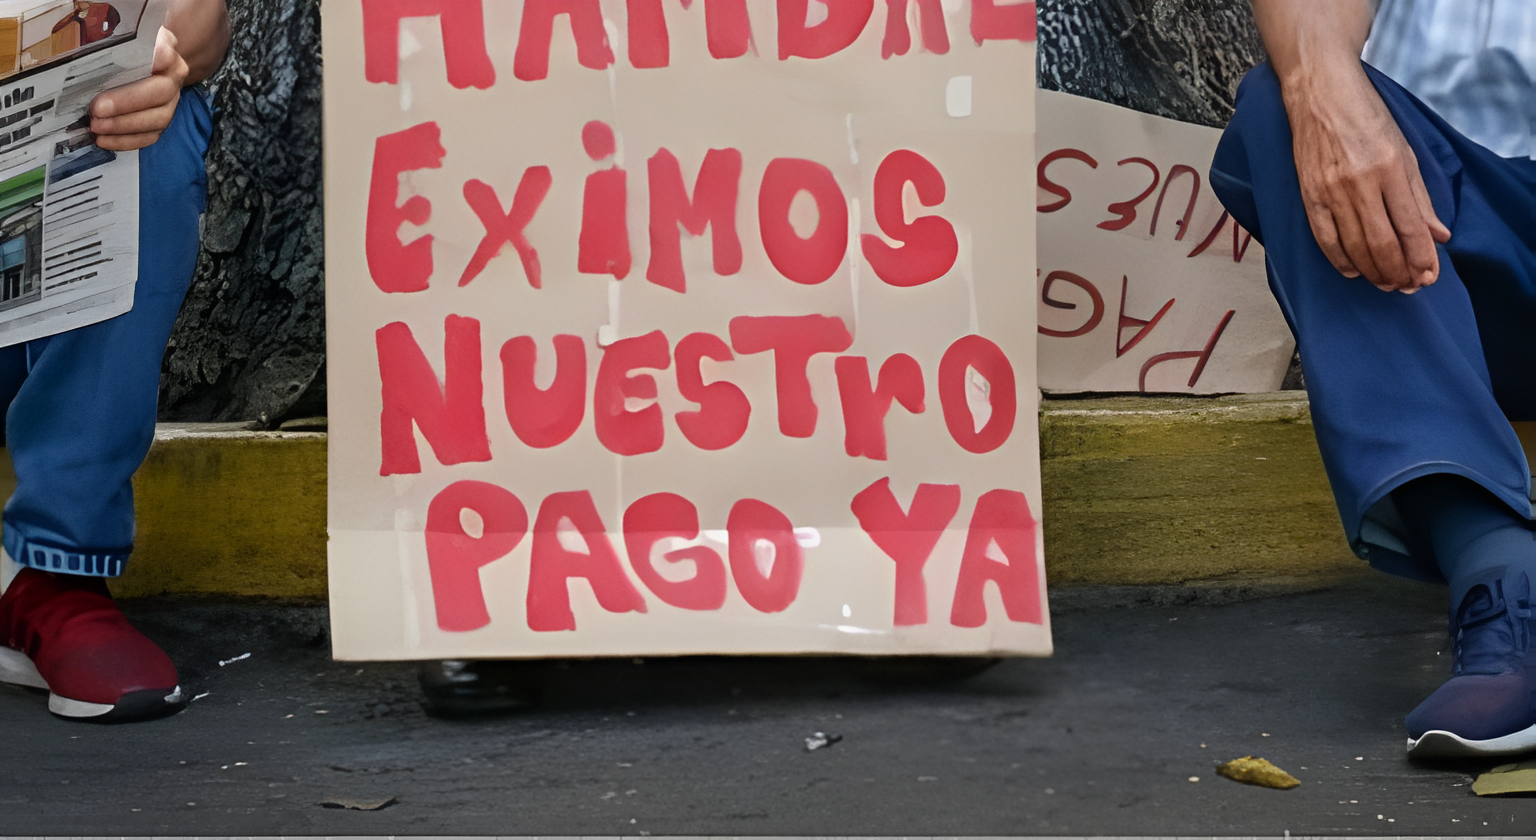 HAMBRE
EXiMOS
NUESTrO
PAGO YA
NUES
PAG